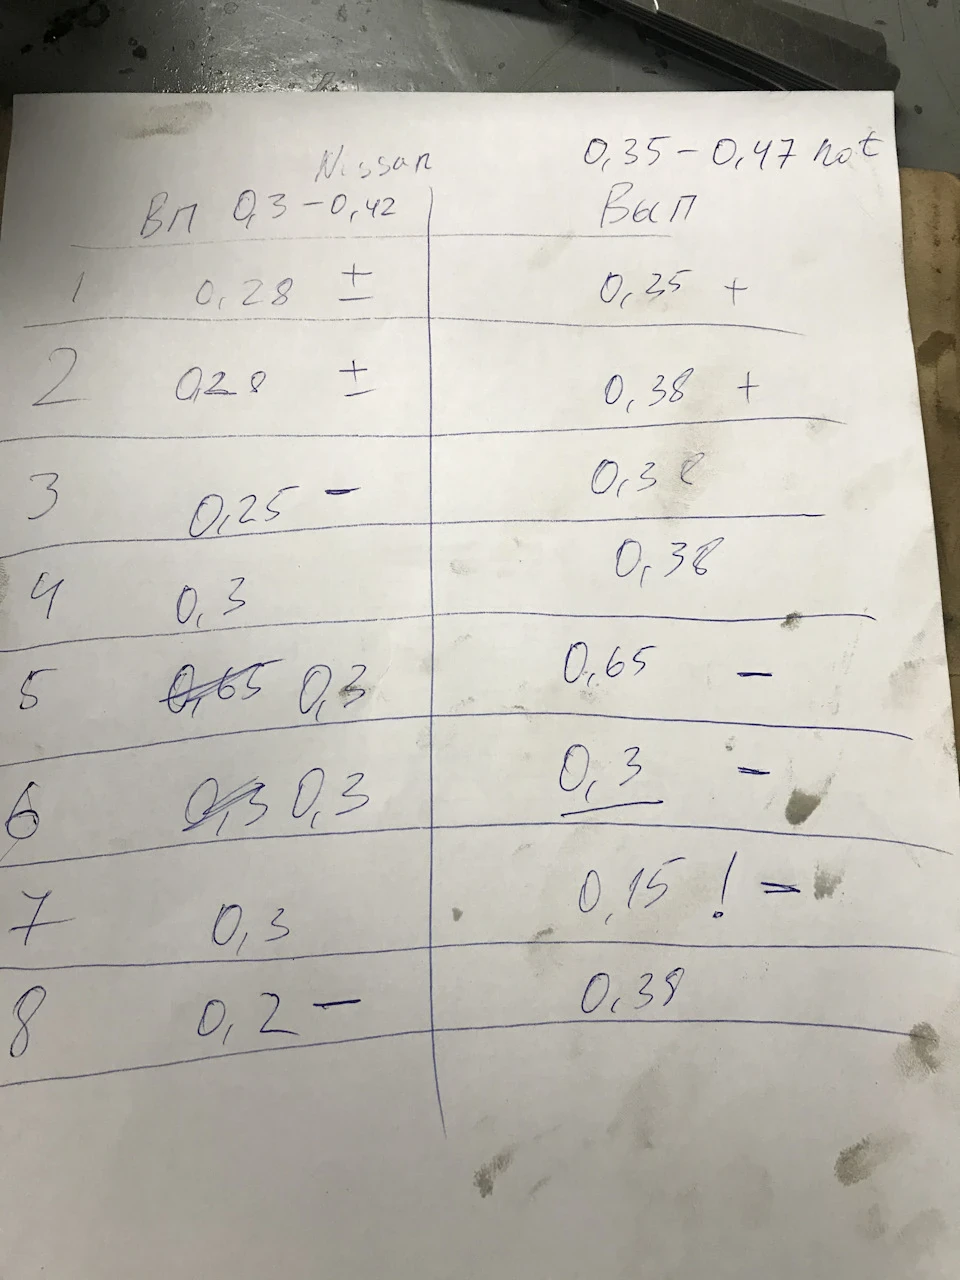 Nissan 0,35-0,47 hot
Вп 0,3-0,42 Вып
1 0,28 ± 0,35 +
2 0,28 ± 0,38 +
3 0,25 - 0,38
4 0,3 0,38
5 0,65 0,3 0,65 -
6 0,3 0,3 0,3 -
7 0,3 0,15 ! -
8 0,2 - 0,38